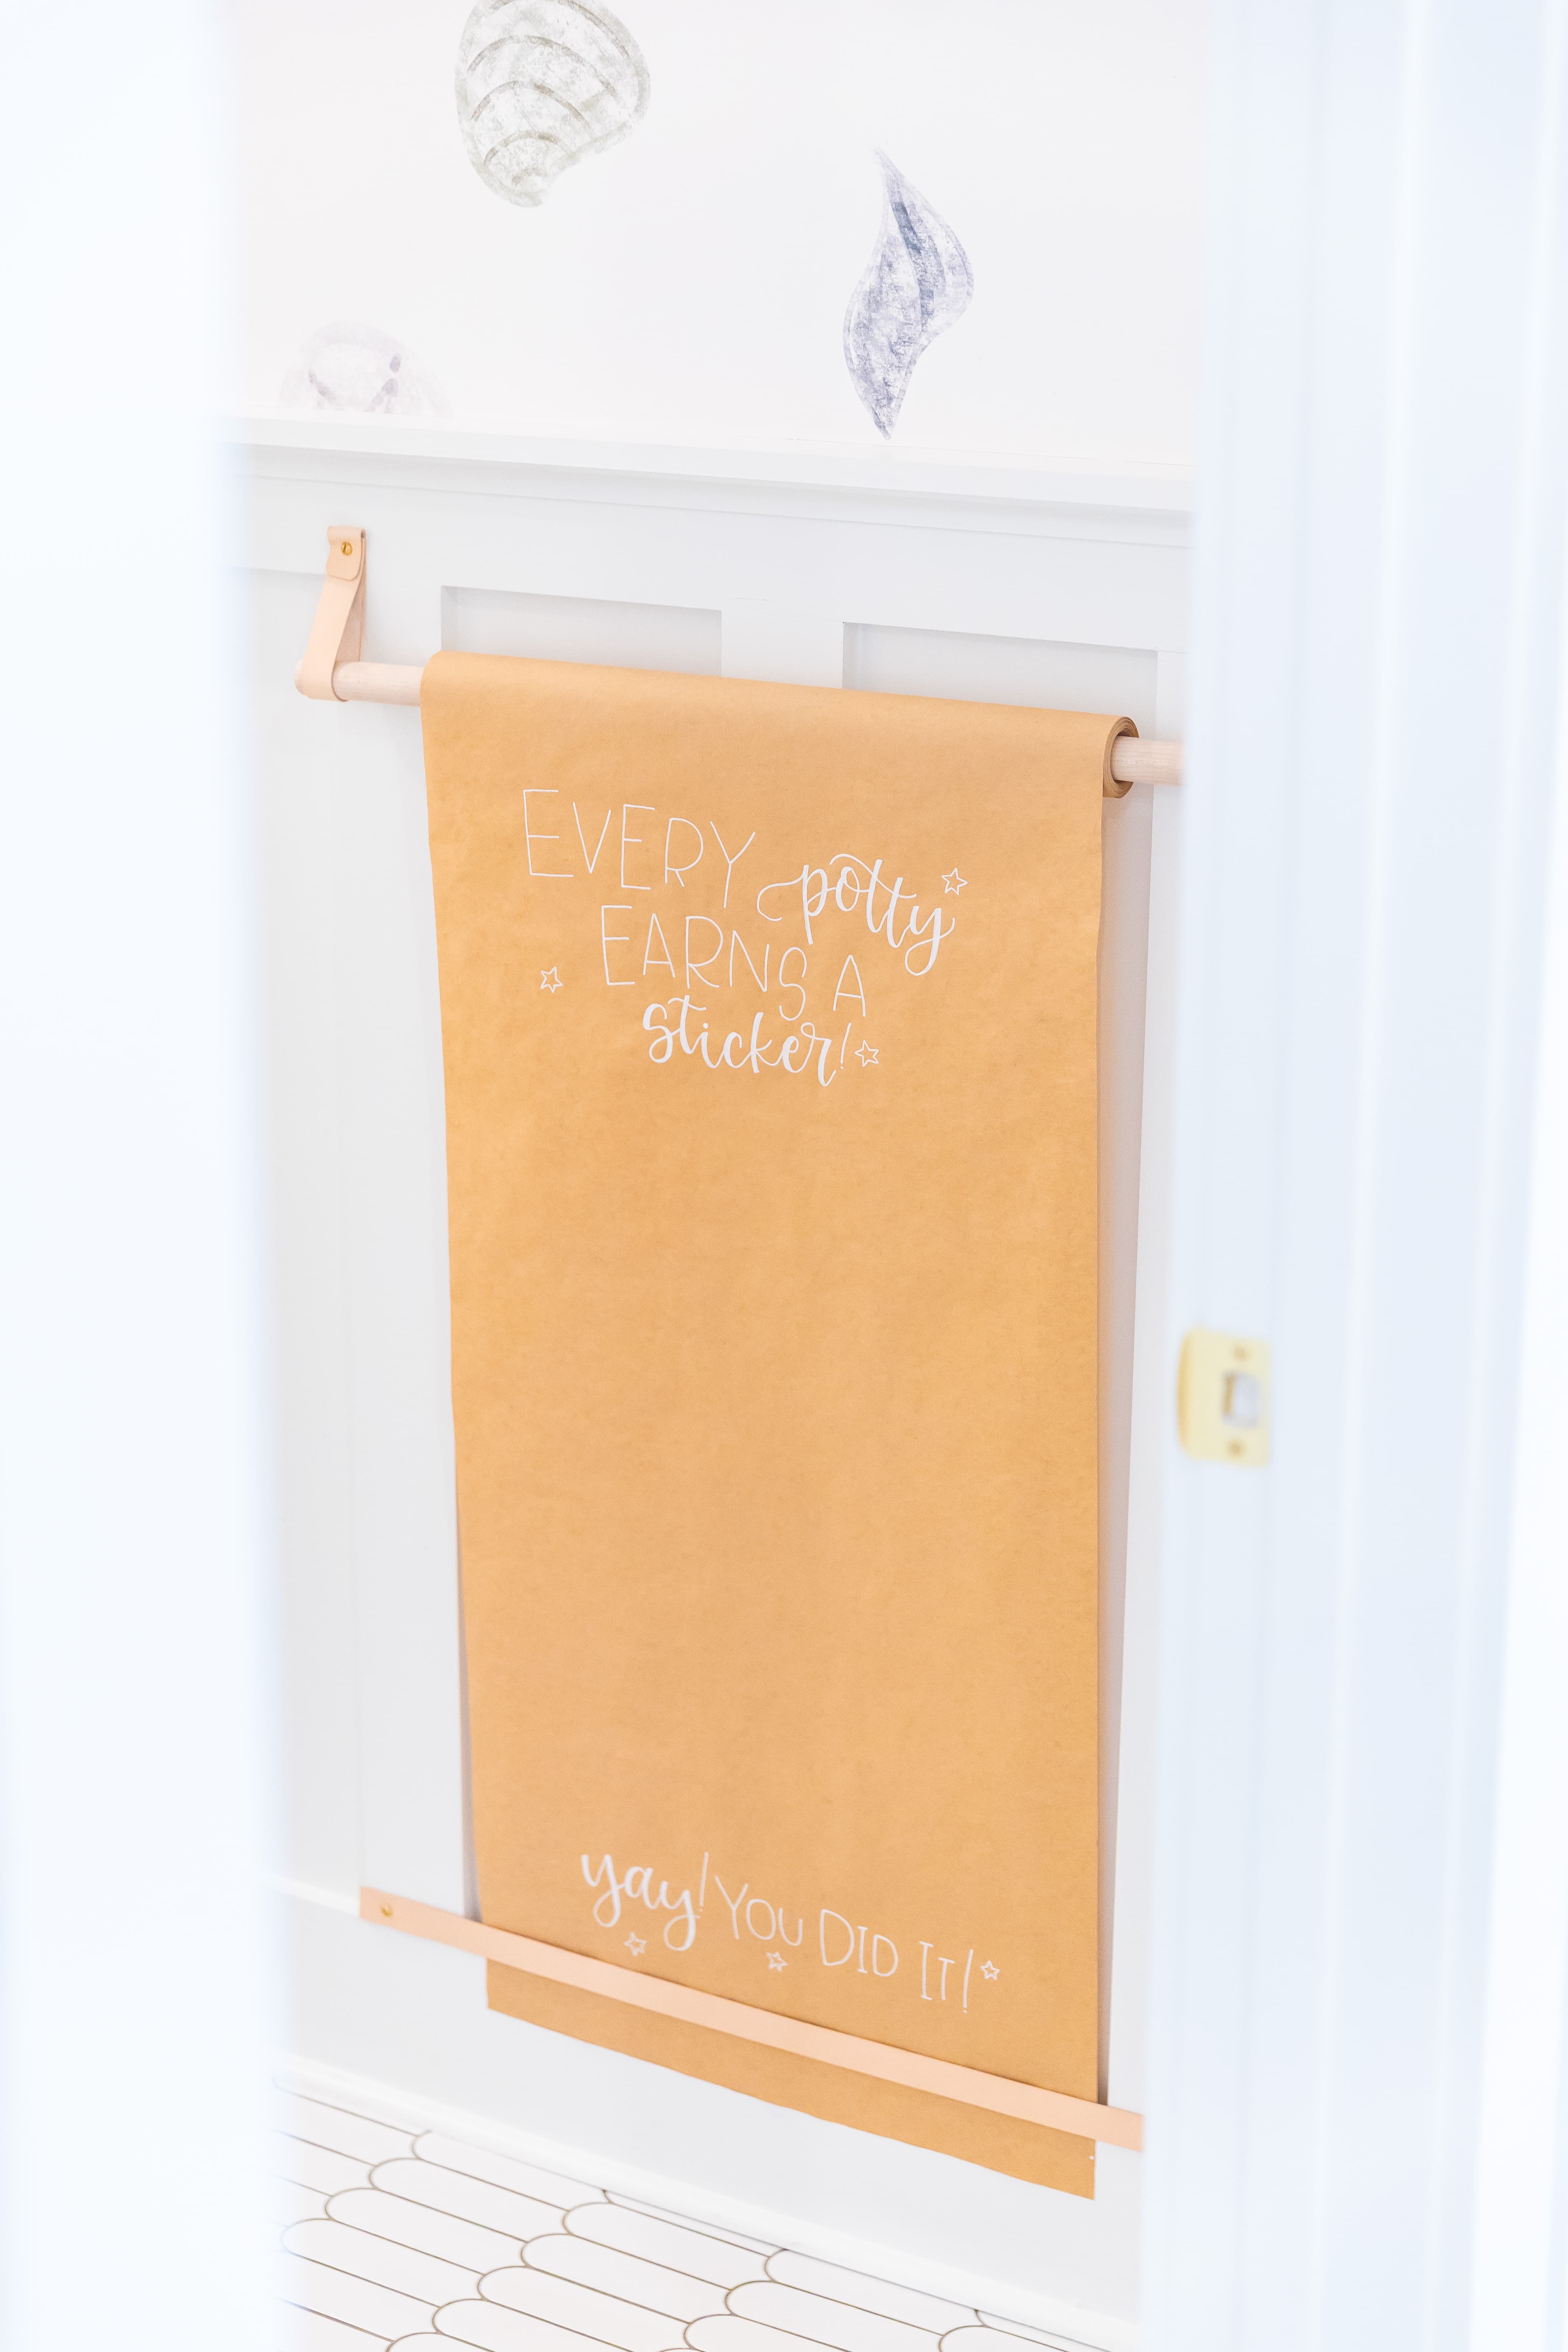 EVERY potty
EARNS A
sticker!
yay! YOU DID IT!